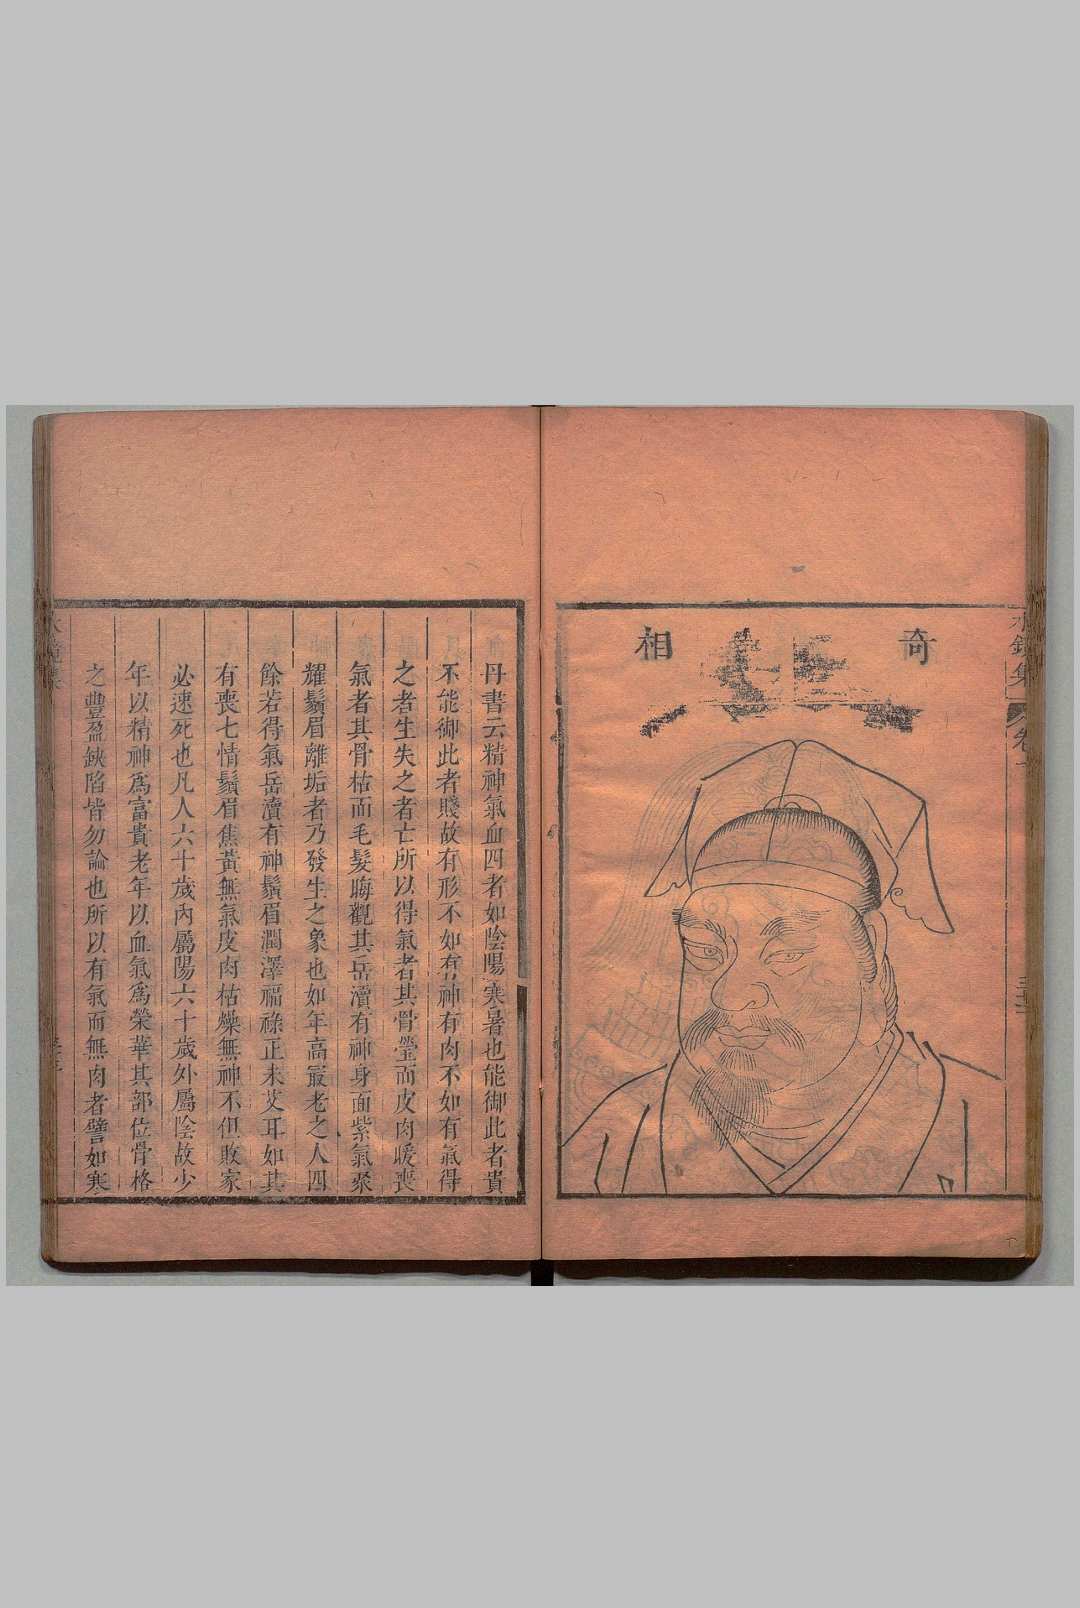 奇相
丹書云精神氣血四者如陰陽寒暑也能御此者貴
不能御此者賤故有形不如有神有肉不如有氣得
之者生失之者亡所以得氣者其骨瑩而皮肉暖喪
氣者其骨枯而毛髮晦觀其岳瀆有神身面紫氣聚
耀鬚眉離垢者乃發生之象也如年高最老之人四
餘若得氣岳瀆有神鬚眉潤澤福祿正未艾耳如其
有喪七情鬚眉焦黃無氣皮肉枯燥無神不但敗家
必速死也凡人六十歲內屬陽六十歲外屬陰故少
年以精神爲富貴老年以血氣爲榮華其部位骨格
之豐盈缺陷皆勿論也所以有氣而無肉者譬如寒